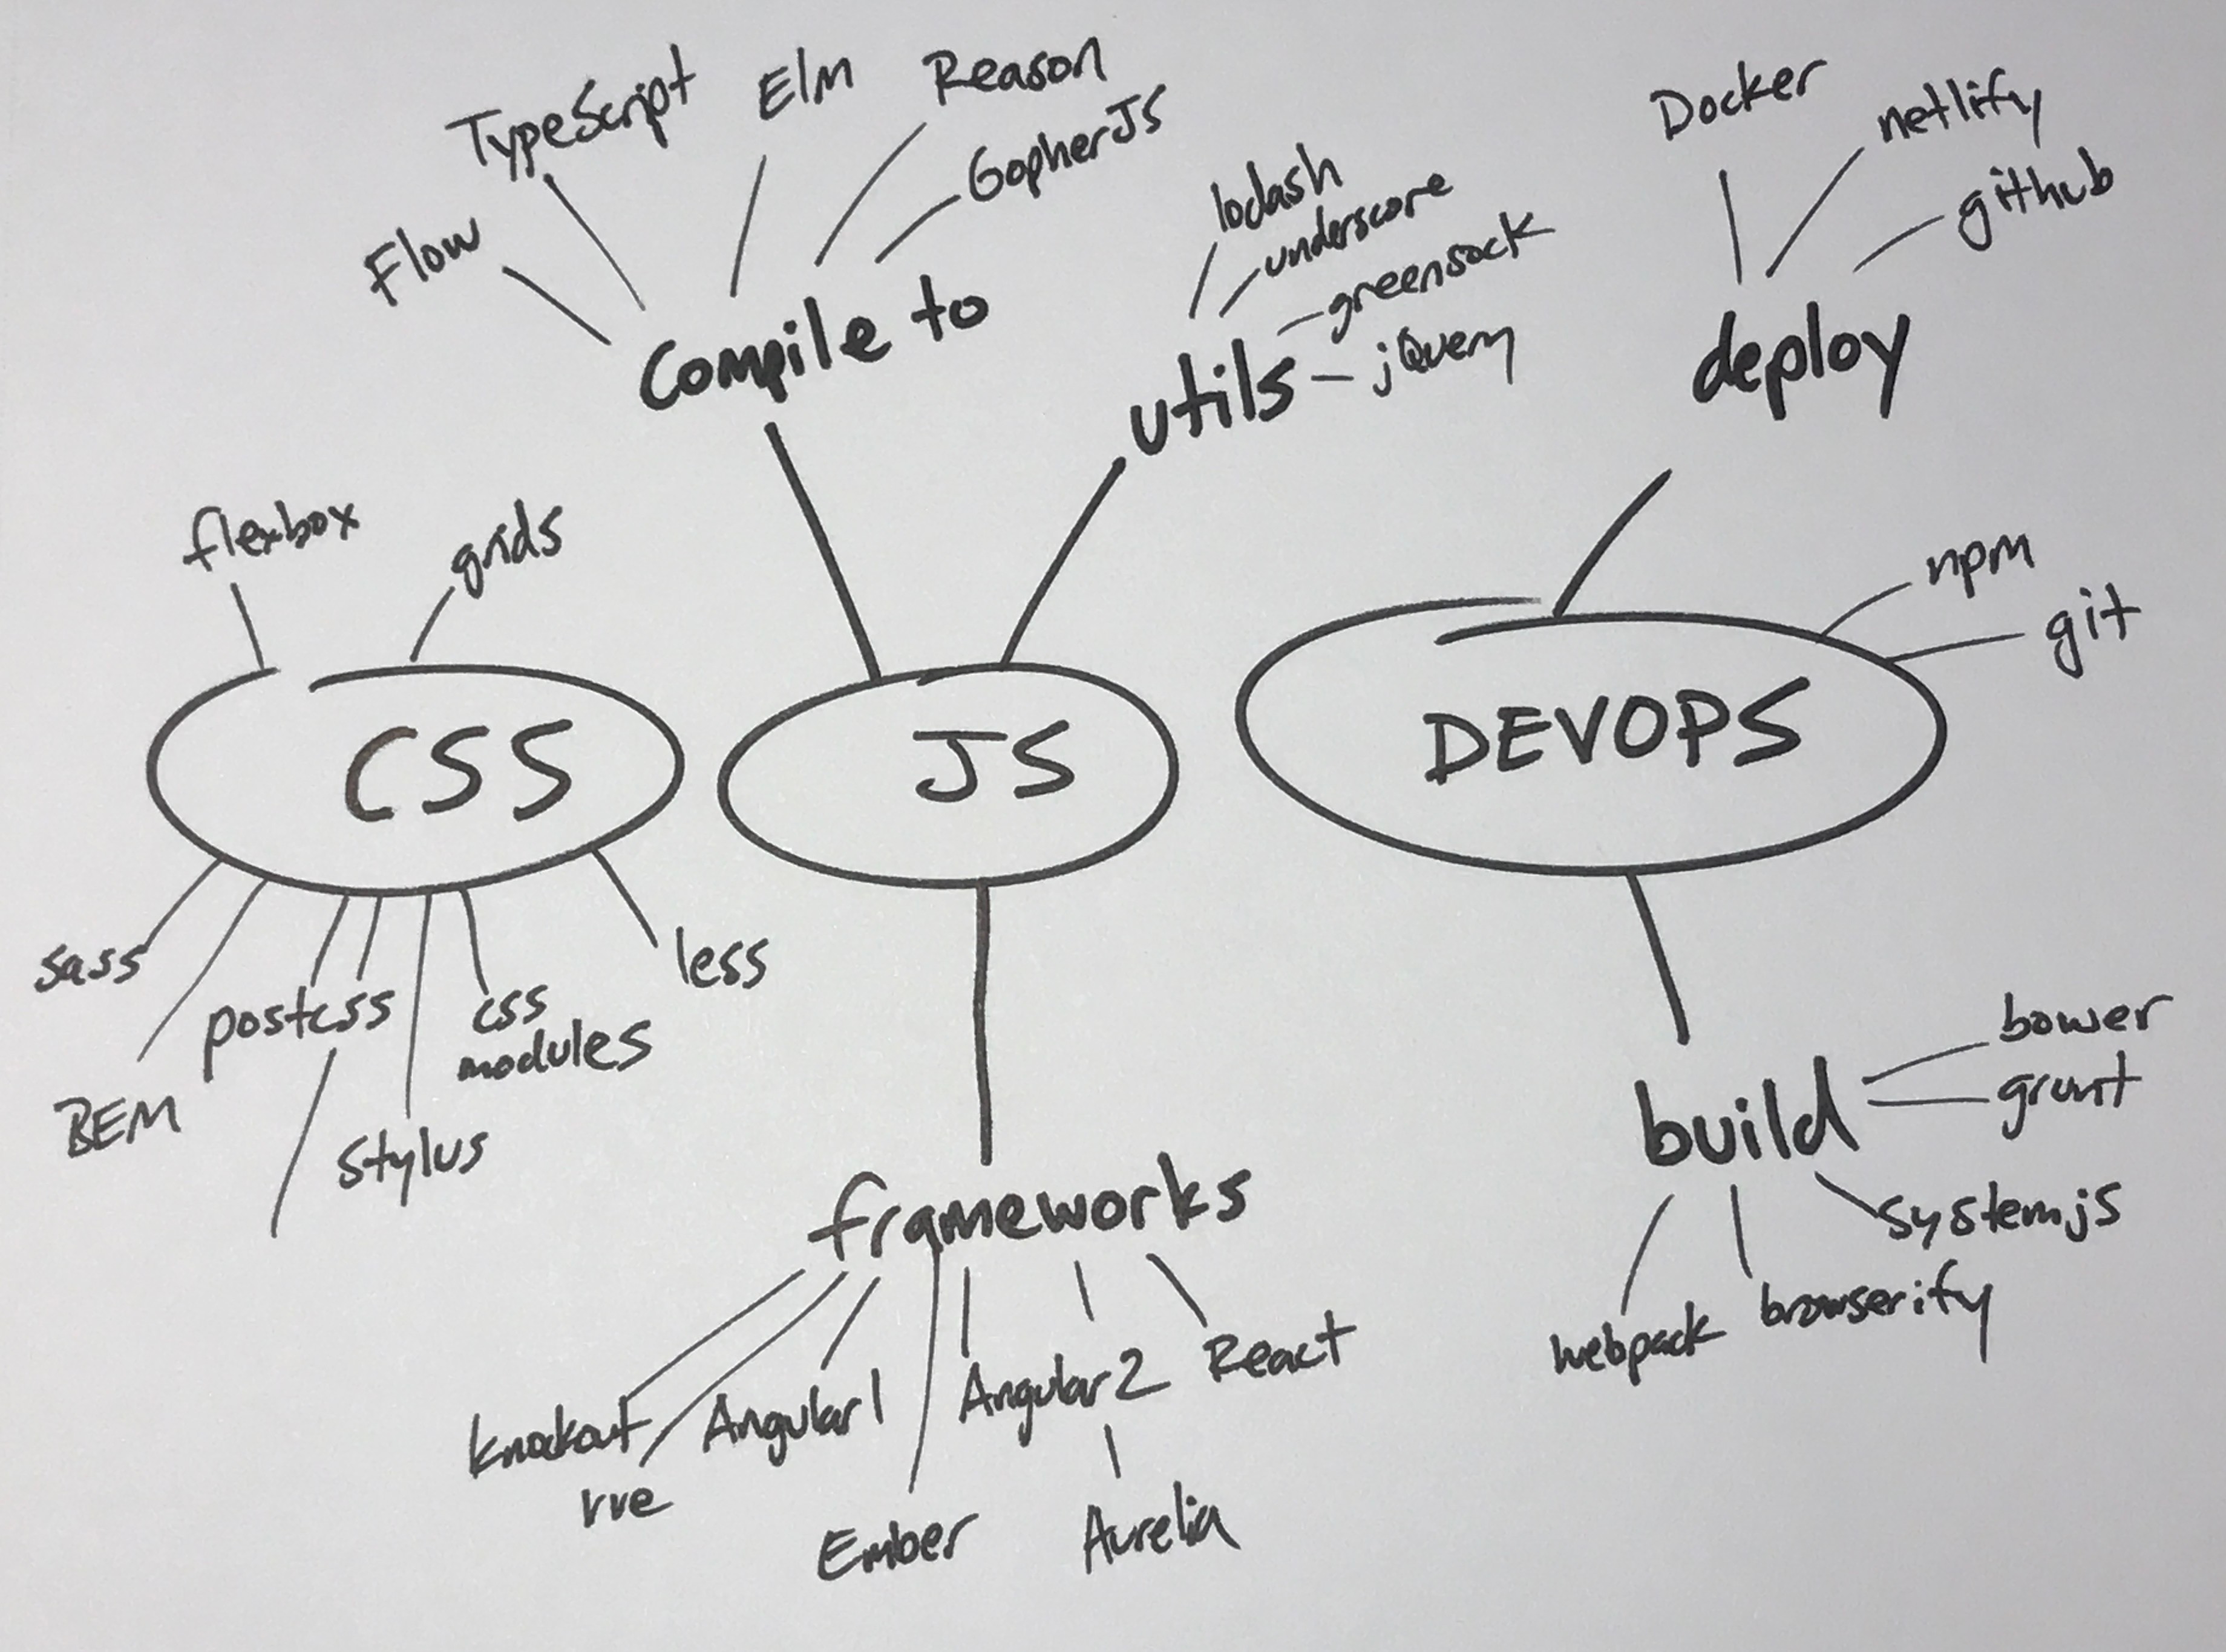 TypeScript
Elm
Reason
GopherJS
Flow
Compile to
lodash
underscore
greensock
jQuery
utils
Docker
netlify
github
deploy
flexbox
grids
npm
git
CSS
JS
DEVOPS
sass
BEM
postcss
stylus
css
modules
less
frameworks
knockout
vue
Angular1
Ember
Angular2
Aurelia
React
build
bower
grunt
systemjs
browserify
webpack